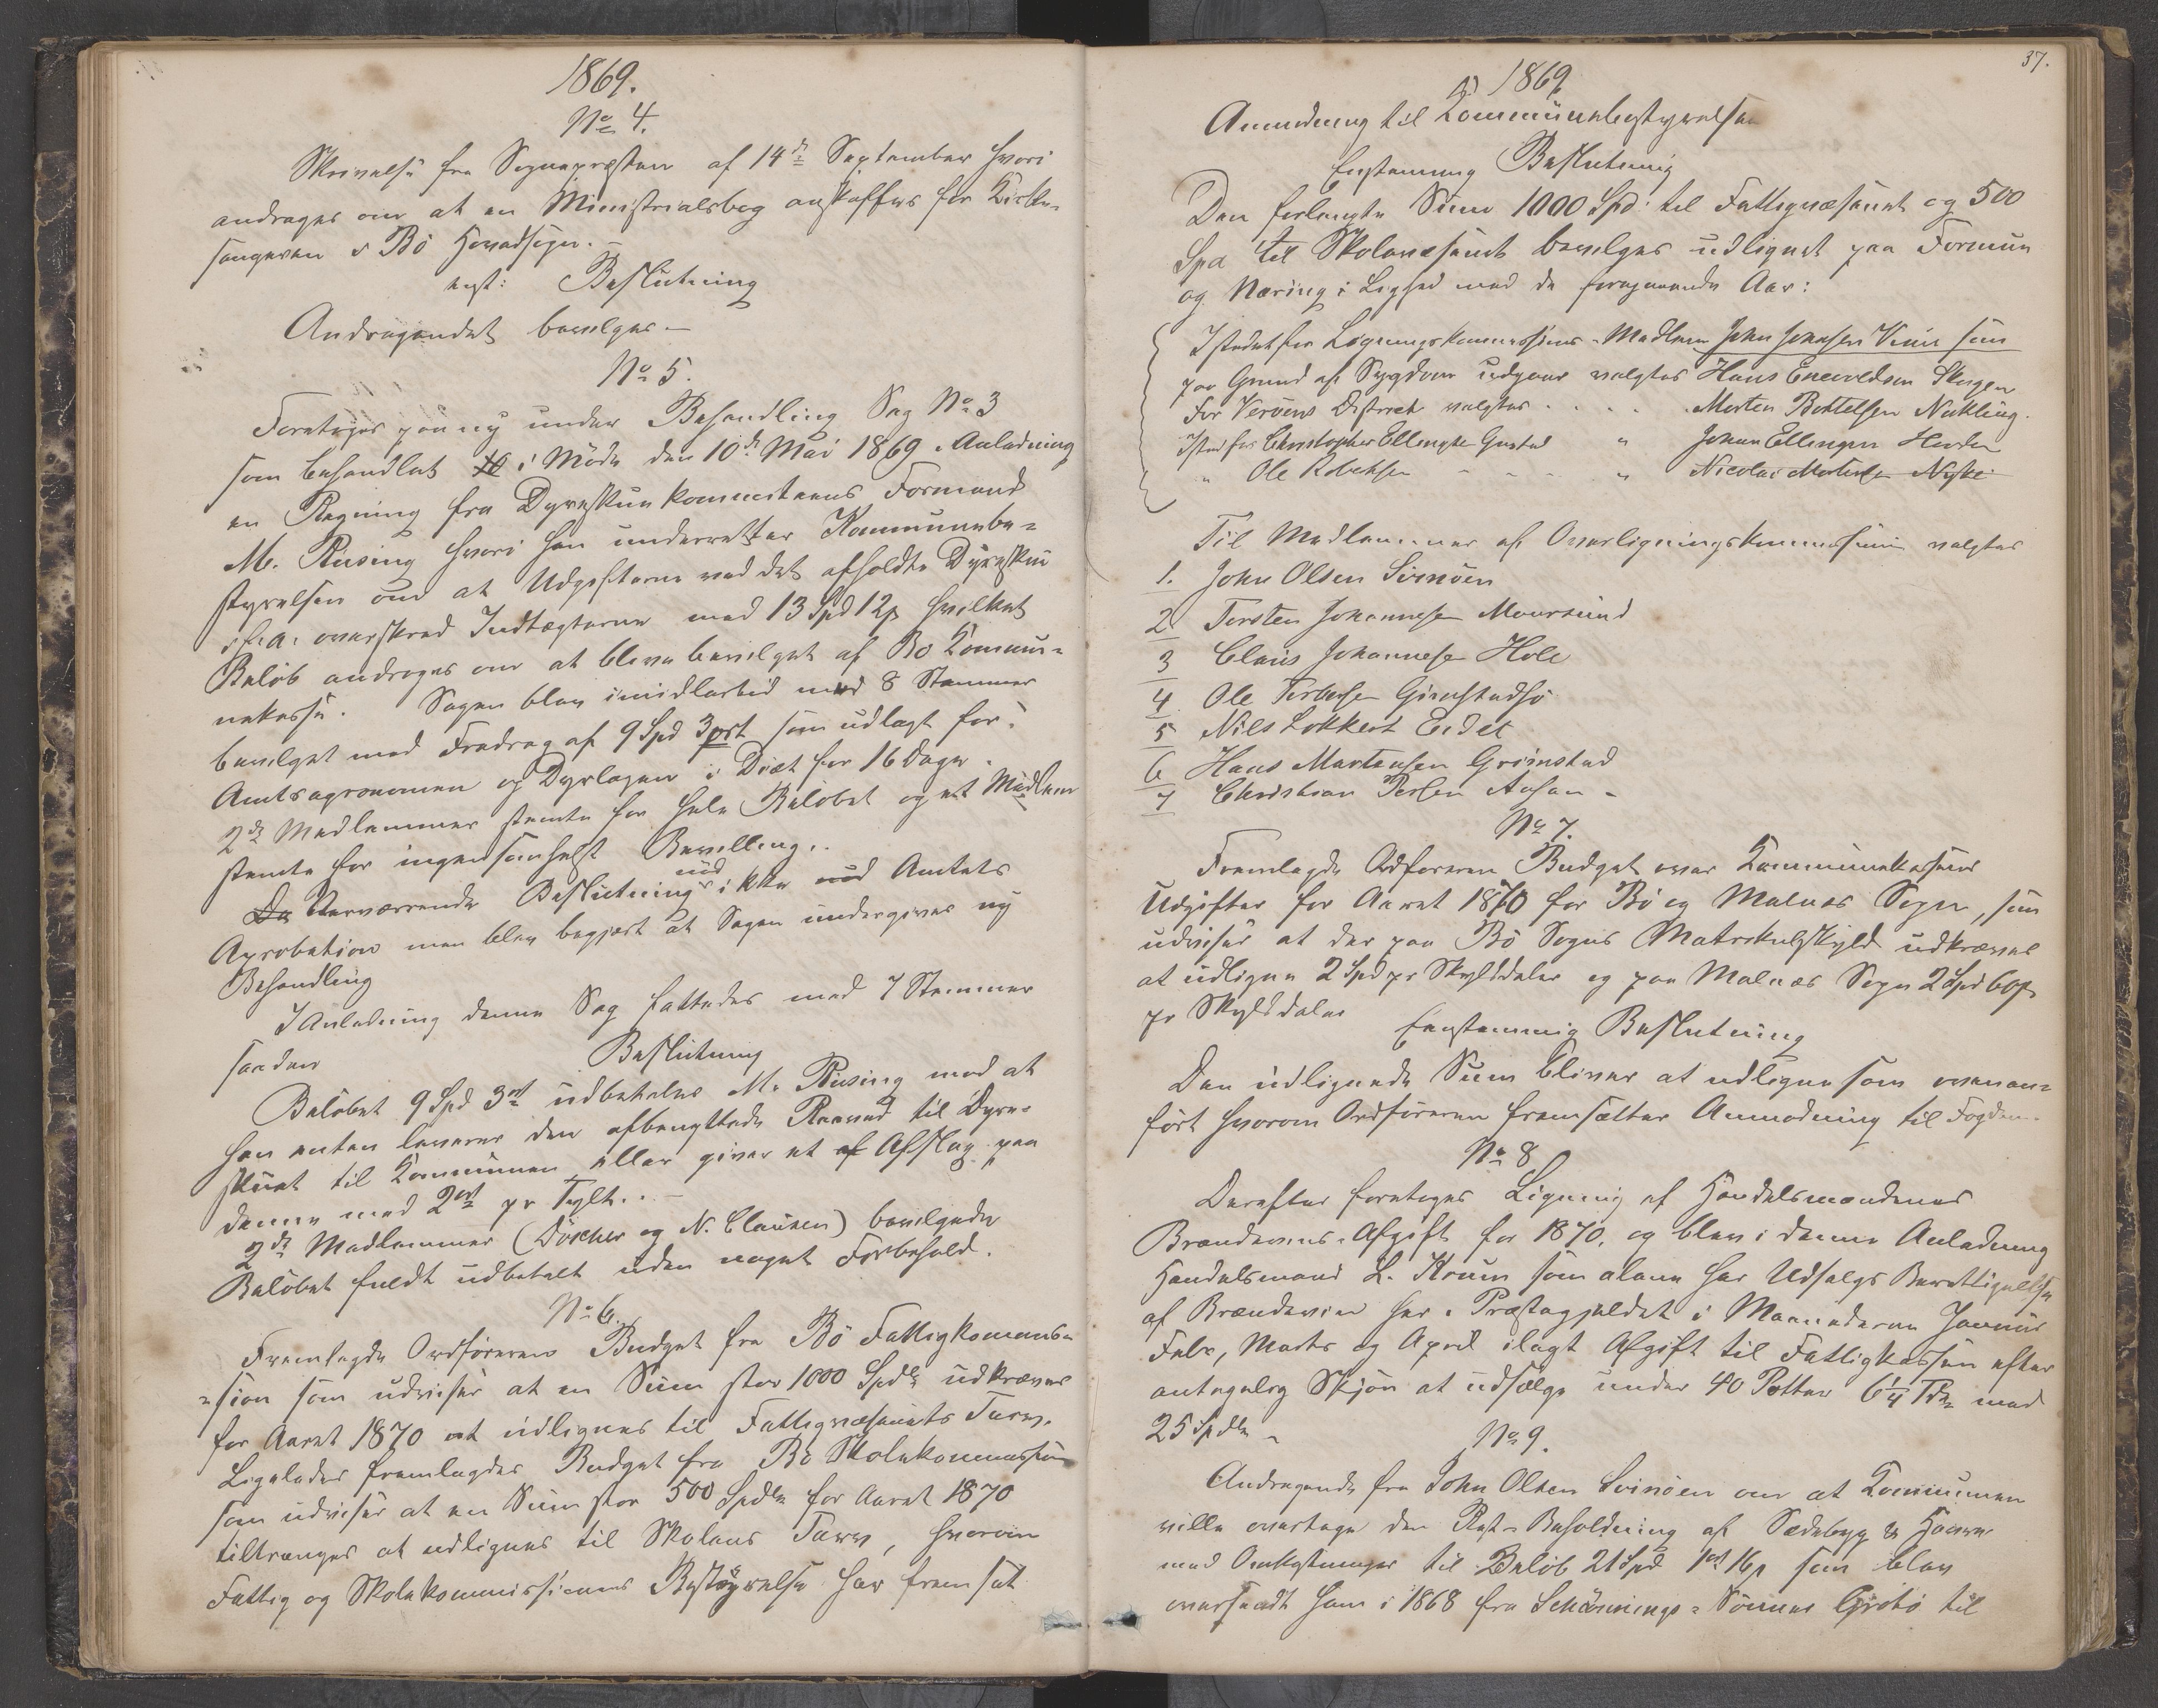 1869.
No 4.
Skrivelse fra Sognepræsten af 14de September hvori
andrages om at en Ministrialsbog anskaffes for Kirke-
sangeren i Bö Hovedsogn. -
enst: Beslutning
Andragendet bevilges -
No 5.
Foretoges paa ny under Behandling Sag No 3
som behandlet i Möde den 10de Mai 1869 i Anledning
en Regning fra Dyreskuekomiteens Formand
M. Rusing hvori han underretter Kommunebe=
styrelsen om at Udgifterne ved det afholdte Dyreskue
i f. a. overskred Indtægterne med 13 Spd 12 s hvilket
Belöb androges om at bleve bevilget af Bö Kommu=
nekasse. Sagen blev imidlertid med 8 Stemmer
bevilget med Fradrag af 9 Spd 3 ort som udlagt for
Amtsagronomen og Dyrlægen i Diæt for 16 Dage.
2de Medlemmer stemte for hele Belöbet og et Medlem
stemte for ingensomhelst Bevilling.
Da Nærværende Beslutning ikke vandt Amtets
Aprobation men blev begjært at Sagen undergives ny
Behandling
I Anledning denne Sag fattedes med 7 Stemmer
saadan Beslutning
Belöbet 9 Spd 3 ort udbetales M. Rusing mod at
han enten leverer den afbenyttede Raaved til Dyre-
skuet til Kommunen eller giver et af Afslag paa
denne med 2 ort pr Tylt. -
2de Medlemmer (Döscher og N. Clausen) bevilgede
Belöbet fuldt udbetalt uden noget Forbehold.
No 6.
Fremlagde Ordföreren Budget fra Bö Fattigkomis-
=sion som udviser at en Sum stor 1000 Spdlr udkræves
for Aaret 1870 at udlignes til Fattigvæsenets Tarv.
Ligeledes fremlagdes Budget fra Bö Skolekommission
som udviser at en Sum stor 500 Spdlr for Aaret 1870
tiltrænges at udlignes til Skolens Tarv, hvorom
Fattig og Skolekommissionens Bestyrelse har fremsat
37.
1869
Anmodning til Kommunebestyrelsen
Enstemmig Beslutning
Den forlangte Sum 1000 Spd til Fattigvæsenet og 500
Spd til Skolevæsenet bevilges udlignet paa Formue
og Næring i Lighed med de foregaaende Aar:
Istedetfor Ligningskommissions-Medlem John Johnsen Vinie som
paa Grund af Sygdom udgaar valgtes Hans Enevoldsen Skagen
For Veröens Distrikt valgtes . . . . . Morten Bertelsen Nykling.
Istedfor Christopher Ellingsen Guvstad " Johan Ellingsen Hovden
" Ole Robertsen - - - " Nicolai Mortensen Nyke
Til Medlemmer af Overligningskommissionen valgtes
1. John Olsen Svinöen
2. Torsten Johannesen Moursund
3 Claus Johannesen Hole
4. Ole Torbersen Grimstadsö
5 Nils Lokkert Eidet
6 Hans Martensen Grimstad
7 Christian Persen Aasan -
No 7.
Fremlagde Ordföreren Budget over Kommunekassens
Udgifter for Aaret 1870 for Bö og Malnæs Sogn, som
udviser at der paa Bö Sogns Matrikulskyld udkræves
at udligne 2 Spd pr Skylddaler og paa Malnæs Sogn 2 Spd 60 s
pr Skylddaler Enstemmig Beslutning
Den udlignede Sum bliver at udligne som ovenan=
fört hvorom Ordföreren fremsætter Anmodning til Fogden.
No 8
Derefter foretoges Ligning af Handelsmændenes
Brændevins-Afgift for 1870. og blev i denne Anledning
Handelsmand L. Kruun som alene har Udsalgs Berettigelse
af Brændevin her i Præstegjeldet i Maanederne Januar
Febr, Marts og April ilagt Afgift til Fattigkassen efter
antagelig Skjön at udsælge under 40 Potter 6 1/4 Tdr med
25 Spdlr -
No 9.
Andragende fra John Olsen Svinöen om at Kommunen
ville overtage den Rest-Beholdning af Sædebyg & Havre
med Omkostninger til Belöb 21 Spd 1 ort 16 s som blev
oversendt ham i 1868 fra Schönnings-Sönner Grötö til